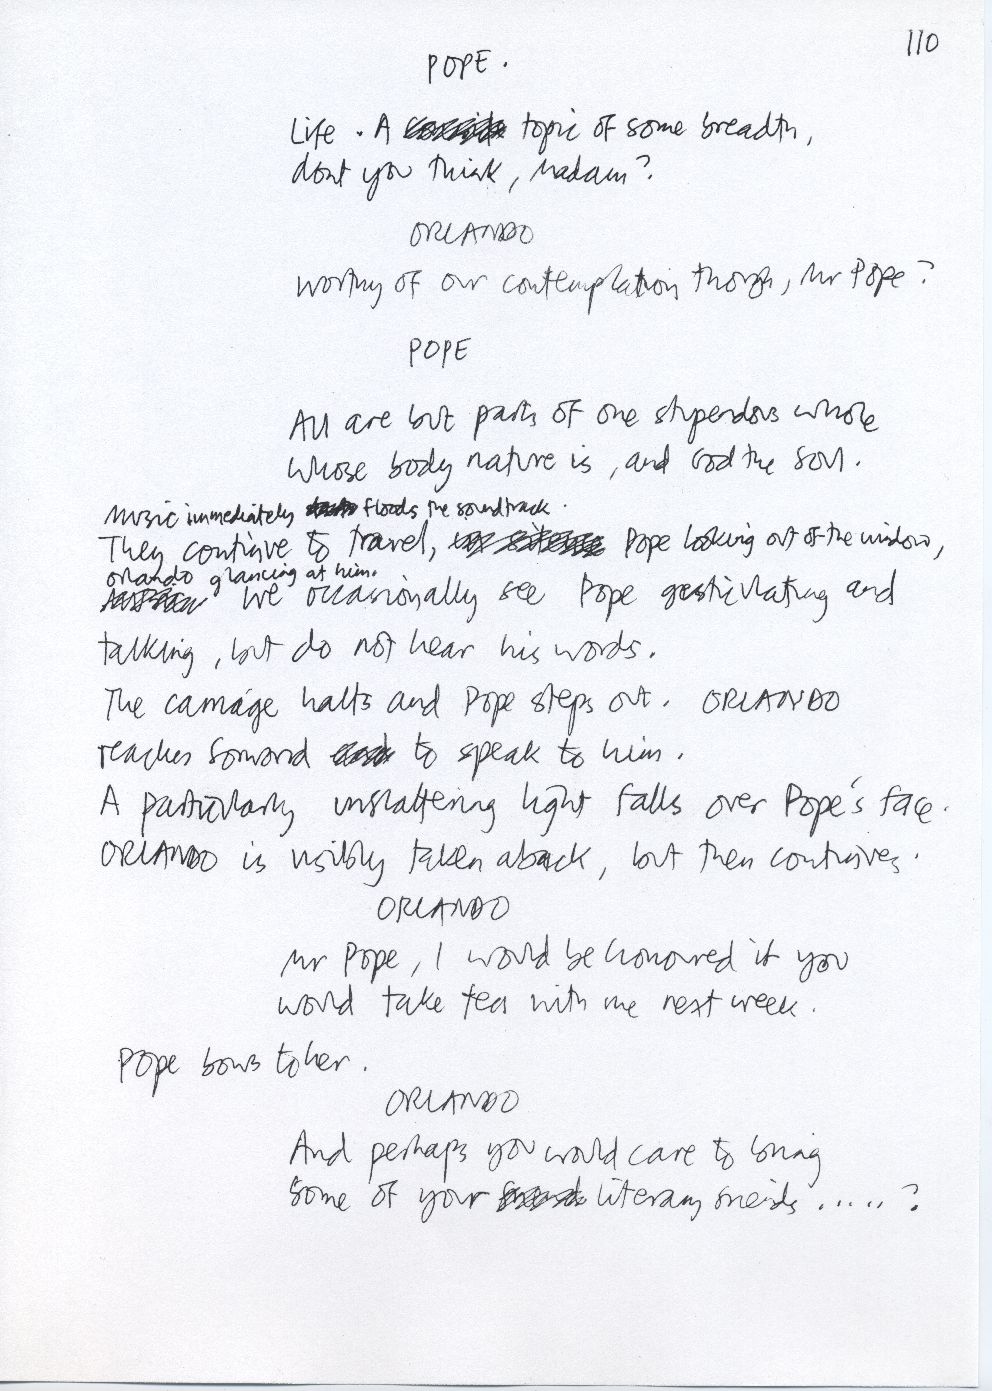 110
POPE.
Life. A topic of some breadth,
dont you think, Madam?
ORLANDO
Worthy of our contemplation though, Mr Pope?
POPE
All are but parts of one stupendous whole
Whose body nature is, and God the soul.
Music immediately floods the soundtrack.
They continue to travel, Pope looking out of the window,
Orlando glancing at him.
We occasionally see Pope gesticulating and
talking, but do not hear his words.
The carriage halts and Pope steps out. ORLANDO
reaches forward to speak to him.
A particularly unflattering light falls over Pope's face.
ORLANDO is visibly taken aback, but then continues.
ORLANDO
Mr Pope, I would be honoured if you
would take tea with me next week.
Pope bows to her.
ORLANDO
And perhaps you would care to bring
some of your literary friends.....?